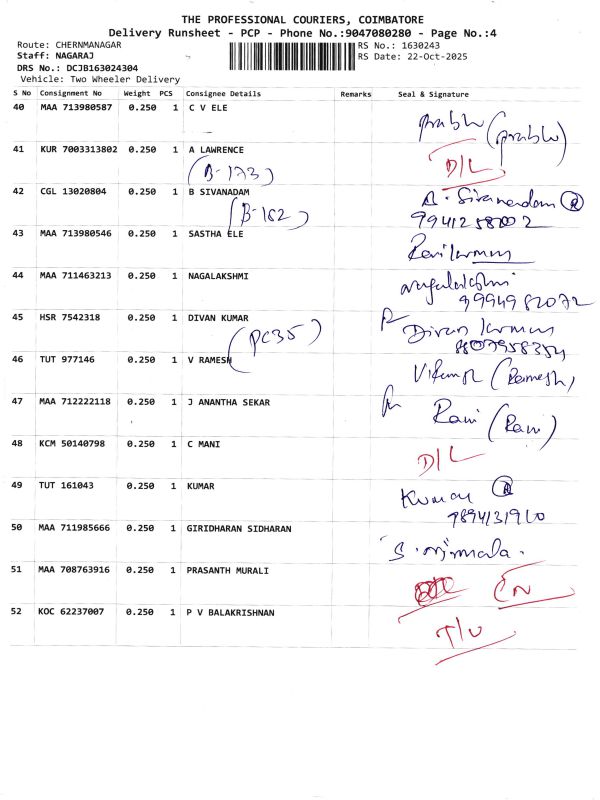 THE PROFESSIONAL COURIERS, COIMBATORE
Delivery Runsheet - PCP - Phone No.:9047080280 - Page No.:4
Route: CHERNMANAGAR RS No.: 1630243
Staff: NAGARAJ RS Date: 22-Oct-2025
DRS No.: DCJB163024304
Vehicle: Two Wheeler Delivery
S No Consignment No Weight PCS Consignee Details Remarks Seal & Signature
40 MAA 713980587 0.250 1 C V ELE
Prabhu (Prabhu)
41 KUR 7003313802 0.250 1 A LAWRENCE
(B-173) D/L
42 CGL 13020804 0.250 1 B SIVANADAM A. Sivanandam
(B-162) 9941258002
43 MAA 713980546 0.250 1 SASTHA ELE Ravikumar
44 MAA 711463213 0.250 1 NAGALAKSHMI nagalakshmi
9994982072
45 HSR 7542318 0.250 1 DIVAN KUMAR Divan kumar
(PC35) 8807958354
46 TUT 977146 0.250 1 V RAMESH (Ramesh)
47 MAA 712222118 0.250 1 J ANANTHA SEKAR Rani (Rani)
48 KCM 50140798 0.250 1 C MANI D/L
49 TUT 161043 0.250 1 KUMAR Kumar
9894131910
50 MAA 711985666 0.250 1 GIRIDHARAN SIDHARAN S. nirmala.
51 MAA 708763916 0.250 1 PRASANTH MURALI
52 KOC 62237007 0.250 1 P V BALAKRISHNAN T/U